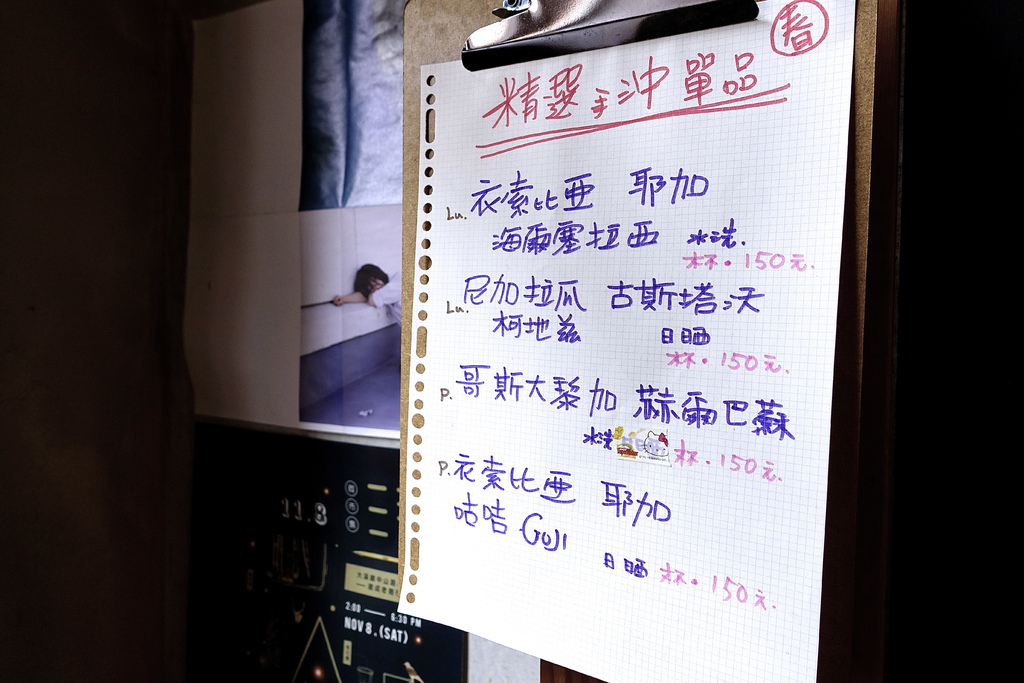 春
精選手沖單品
Lu. 衣索比亞 耶加
海爾塞拉西 水洗.
杯・150元.
Lu. 尼加拉瓜 古斯塔沃
柯地茲 日晒
杯・150元.
P. 哥斯大黎加 赫爾巴蘇
水洗 杯・150元.
P. 衣索比亞 耶加
咕咭 GUJI
日晒 杯・150元.
11.8
2:00 — 6:30 PM
NOV 8.(SAT)